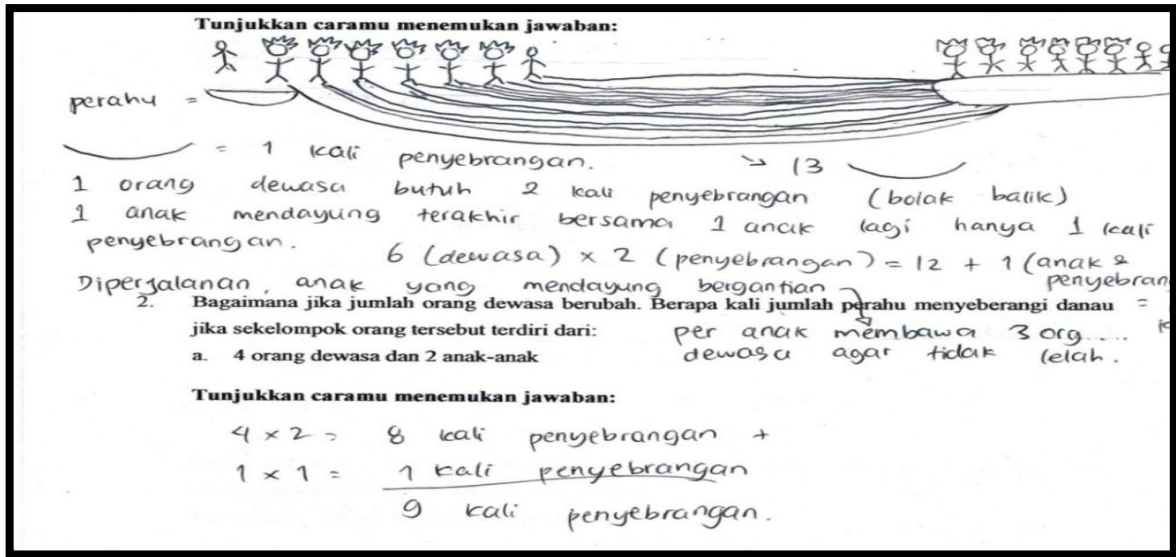 Tunjukkan caramu menemukan jawaban:
perahu =
= 1 kali penyebrangan. → 13
1 orang dewasa butuh 2 kali penyebrangan (bolak balik)
1 anak mendayung terakhir bersama 1 anak lagi hanya 1 kali
penyebrangan. 6 (dewasa) × 2 (penyebrangan) = 12 + 1 (anak &
penyebran
Diperjalanan, anak yang mendayung bergantian →
2. Bagaimana jika jumlah orang dewasa berubah. Berapa kali jumlah perahu menyeberangi danau =
jika sekelompok orang tersebut terdiri dari: per anak membawa 3 org....
a. 4 orang dewasa dan 2 anak-anak dewasa agar tidak lelah.
Tunjukkan caramu menemukan jawaban:
4 × 2 = 8 kali penyebrangan +
1 × 1 = 1 kali penyebrangan
9 kali penyebrangan.